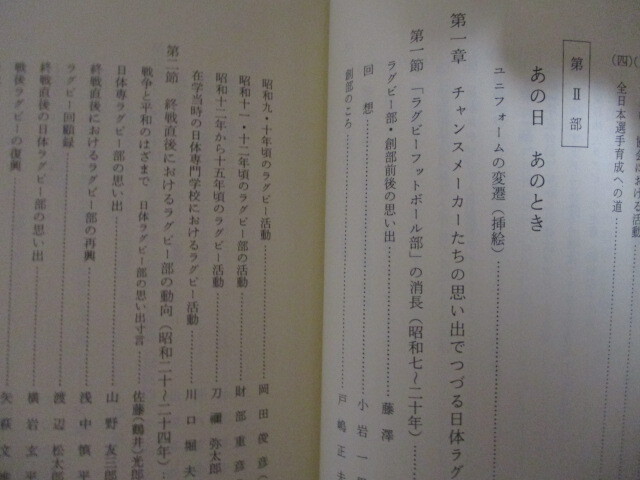 (四)
全日本選手育成への道
第Ⅱ部
あの日 あのとき
ユニフォームの変遷(挿絵)
第一章 チャンスメーカーたちの思い出でつづる日体ラグ
第一節 「ラグビーフットボール部」の消長(昭和七〜二十年)
ラグビー部・創部前後の思い出 藤澤
回想 小岩一
創部のころ 戸嶋正夫
昭和九・十年頃のラグビー活動 岡田俊彦
昭和十一・十二年頃のラグビー部の活動 財部重彦
昭和十二年から十五年頃のラグビー活動 刀禰弥太郎
在学当時の日体専門学校におけるラグビー活動 川口堀夫
第二節 終戦直後におけるラグビー部の動向(昭和二十〜二十四年)
戦争と平和のはざまで 日体ラグビー部の思い出寸言 佐藤(鶴井)光郎
日体専ラグビー部の思い出 山野友三郎
終戦直後におけるラグビー部の再興 浅中慎平
ラグビー回顧録 渡辺松太郎
終戦直後の日体ラグビー部の思い出 横岩玄平
戦後ラグビーの復興 矢萩文